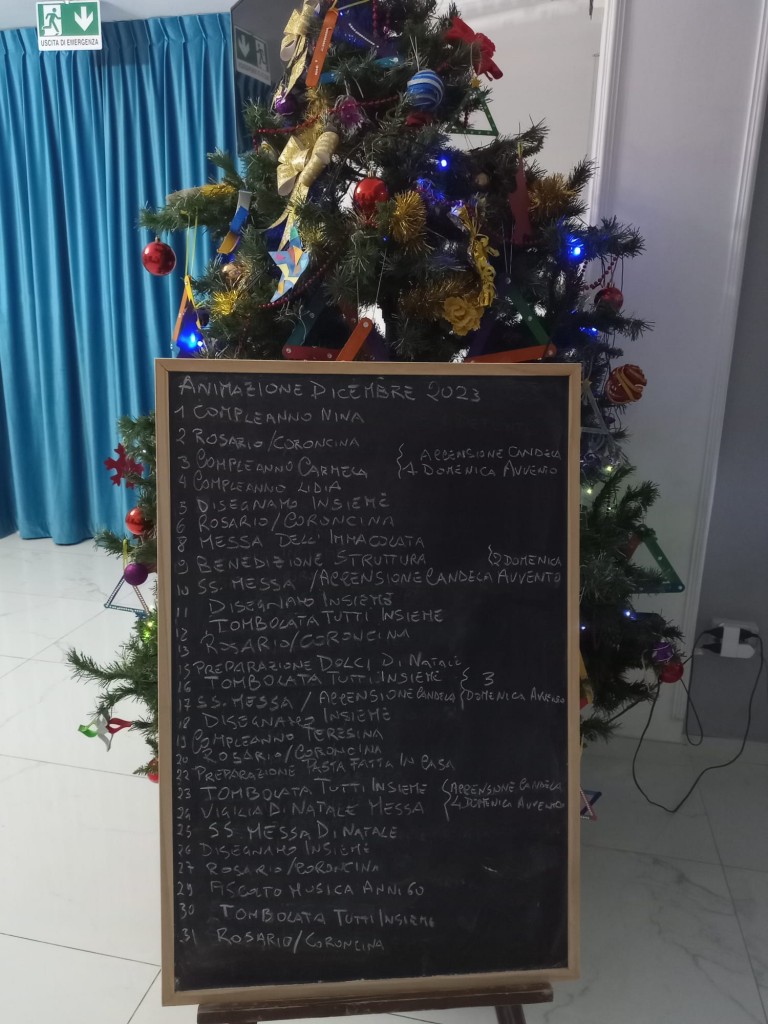 USCITA DI EMERGENZA
ANIMAZIONE DICEMBRE 2023
1 COMPLEANNO NINA
2 ROSARIO/CORONCINA
3 COMPLEANNO CARMELA { ACCENSIONE CANDELA
4 COMPLEANNO LIDIA 1 DOMENICA AVVENTO
5 DISEGNAMO INSIEME
6 ROSARIO/CORONCINA
8 MESSA DELL'IMMACOLATA
9 BENEDIZIONE STRUTTURA { 2 DOMENICA
10 SS. MESSA /ACCENSIONE CANDELA AVVENTO
11 DISEGNAMO INSIEME
12 TOMBOLATA TUTTI INSIEME
13 ROSARIO/CORONCINA
15 PREPARAZIONE DOLCI DI NATALE
16 TOMBOLATA TUTTI INSIEME { 3
17 SS. MESSA / ACCENSIONE CANDELA DOMENICA AVVENTO
18 DISEGNAMO INSIEME
19 COMPLEANNO TERESINA
20 ROSARIO/CORONCINA
22 PREPARAZIONE PASTA FATTA IN CASA
23 TOMBOLATA TUTTI INSIEME { ACCENSIONE CANDELA
24 VIGILIA DI NATALE MESSA 4 DOMENICA AVVENTO
25 SS. MESSA DI NATALE
26 DISEGNAMO INSIEME
27 ROSARIO/CORONCINA
29 ASCOLTO MUSICA ANNI 60
30 TOMBOLATA TUTTI INSIEME
31 ROSARIO/CORONCINA